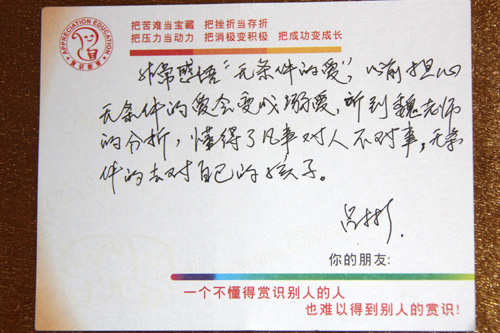 APPRECIATION EDUCATION
赏识教育
把苦难当宝藏 把挫折当存折
把压力当动力 把消极变积极 把成功变成长
非常感悟“无条件的爱”,以前担心
无条件的爱会变成溺爱,听到魏老师
的分析,懂得了凡事对人不对事,无条
件的去对自己的孩子。
吕彬
你的朋友:
一个不懂得赏识别人的人
也难以得到别人的赏识!